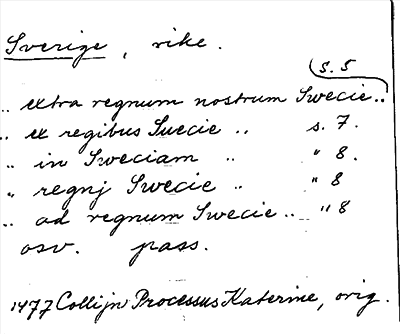 Sverige, rike.
s. 5
.. extra regnum nostrum Swecie..
.. ex regibus Suecie .. s. 7.
.. in Sweciam .. " 8.
.. regnj Swecie .. " 8
.. ad regnum Swecie .. " 8
osv. pass.
1477 Collijn Processus Katerine, orig.